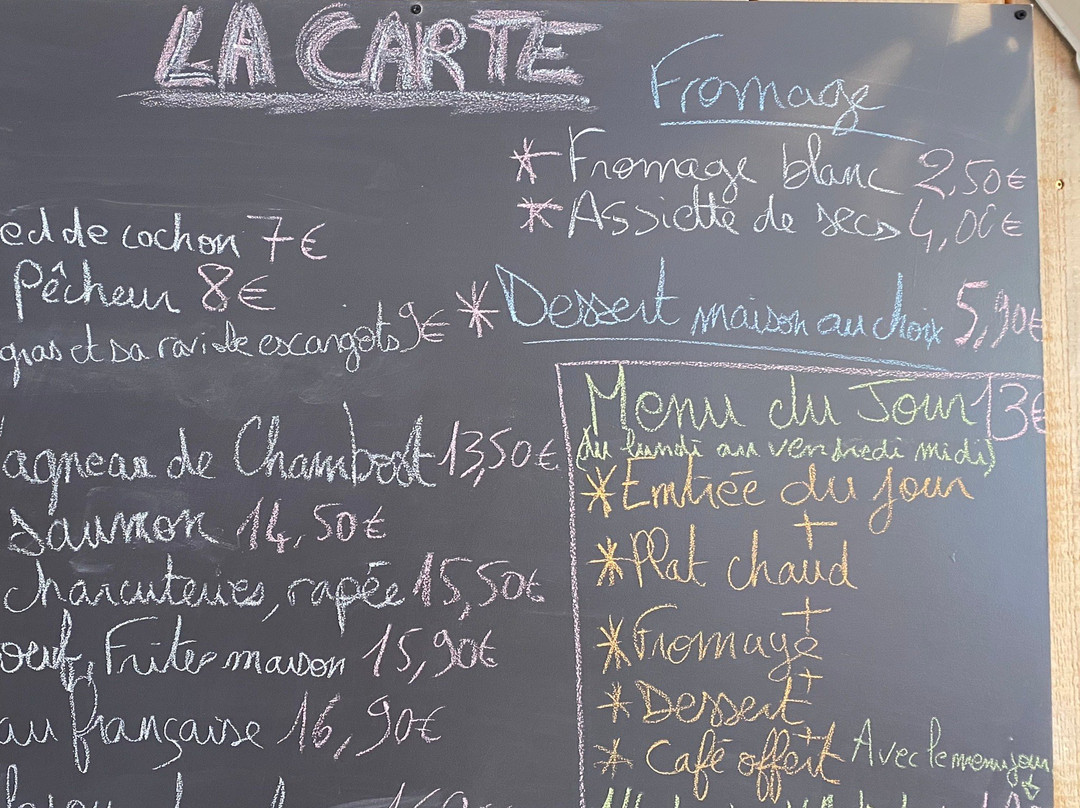 LA CARTE
ed de cochon 7€
Pêcheur 8€
gras et sa escargots 9€
agneau de Chambost 13,50€
saumon 14,50€
charcuteries, rapée 15,50€
oeuf, Frites maison 15,90€
au française 16,90€
Fromage
* Fromage blanc 2,50€
* Assiette de secs 4,00€
* Dessert maison au choix 5,90€
Menu du Jour 13€
(du lundi au vendredi midi)
* Entrée du jour
+
* Plat chaud
+
* Fromage
+
* Dessert
+
* Café offert
Avec le menu jour